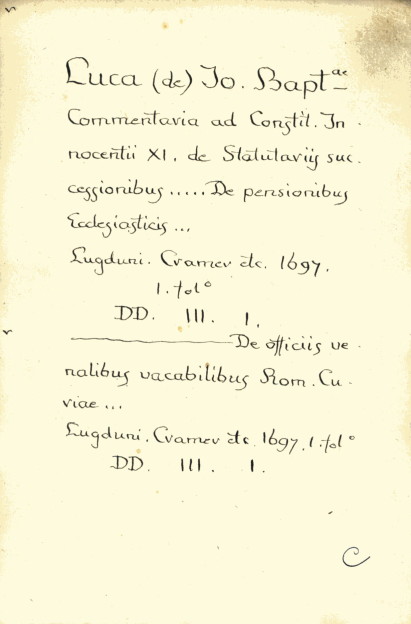 Luca (de) Jo. Bapt.ae
Commentaria ad Constit. In-
nocentii XI. de Statutariis suc-
cessionibus ..... De pensionibus
Ecclesiasticis ...
Lugduni. Cramer etc. 1697.
1. fol°
DD. III. 1.
De officiis ve-
nalibus vacabilibus Rom. Cu-
riae ...
Lugduni. Cramer etc. 1697. 1. fol°
DD. III. 1.
C